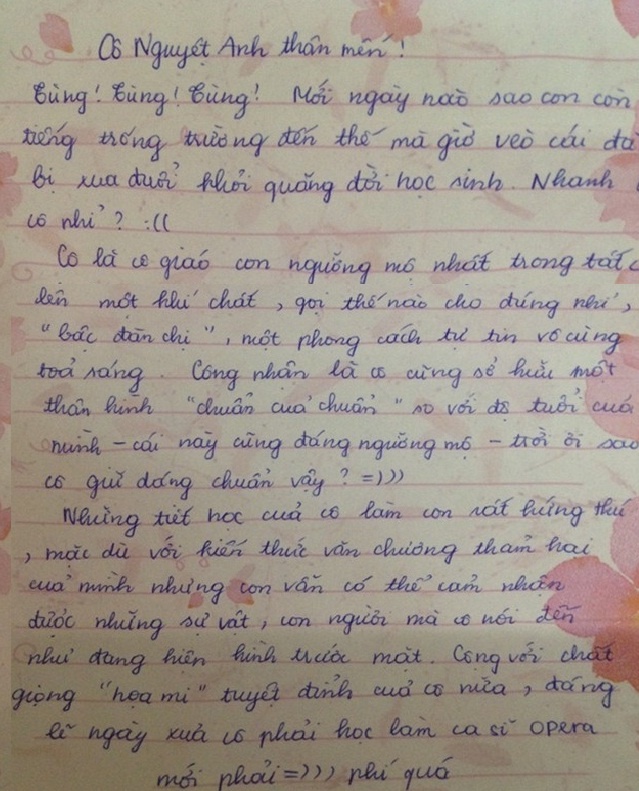 Cô Nguyệt Anh thân mến!
Tùng! Tùng! Tùng! Mới ngày nào sao con còn
tiếng trống trường đến thế mà giờ vèo cái đã
bị xua đuổi khỏi quãng đời học sinh. Nhanh
cô nhỉ? :((
Cô là cô giáo con ngưỡng mộ nhất trong tất c
lên một khí chất, gọi thế nào cho đúng nhỉ,
"bậc đàn chị", một phong cách tự tin vô cùng
toả sáng. Công nhận là cô cũng sở hữu một
thân hình "chuẩn của chuẩn" so với độ tuổi của
mình - cái này cũng đáng ngưỡng mộ - trời ơi sao
cô giữ dáng chuẩn vậy? =)))
Những tiết học của cô làm con rất hứng thú
, mặc dù với kiến thức văn chương thảm hại
của mình nhưng con vẫn có thể cảm nhận
được những sự vật, con người mà cô nói đến
như đang hiện hình trước mặt. Cộng với chất
giọng "họa mi" tuyệt đỉnh của cô nữa, đáng
lẽ ngày xưa cô phải học làm ca sĩ opera
mới phải =))) phí quá